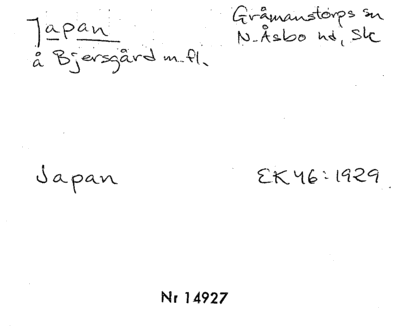 Japan
å Bjersgård m.fl.
Gråmanstorps sn
N. Åsbo hd, Sk
Japan
EK 46: 1929
Nr 14927